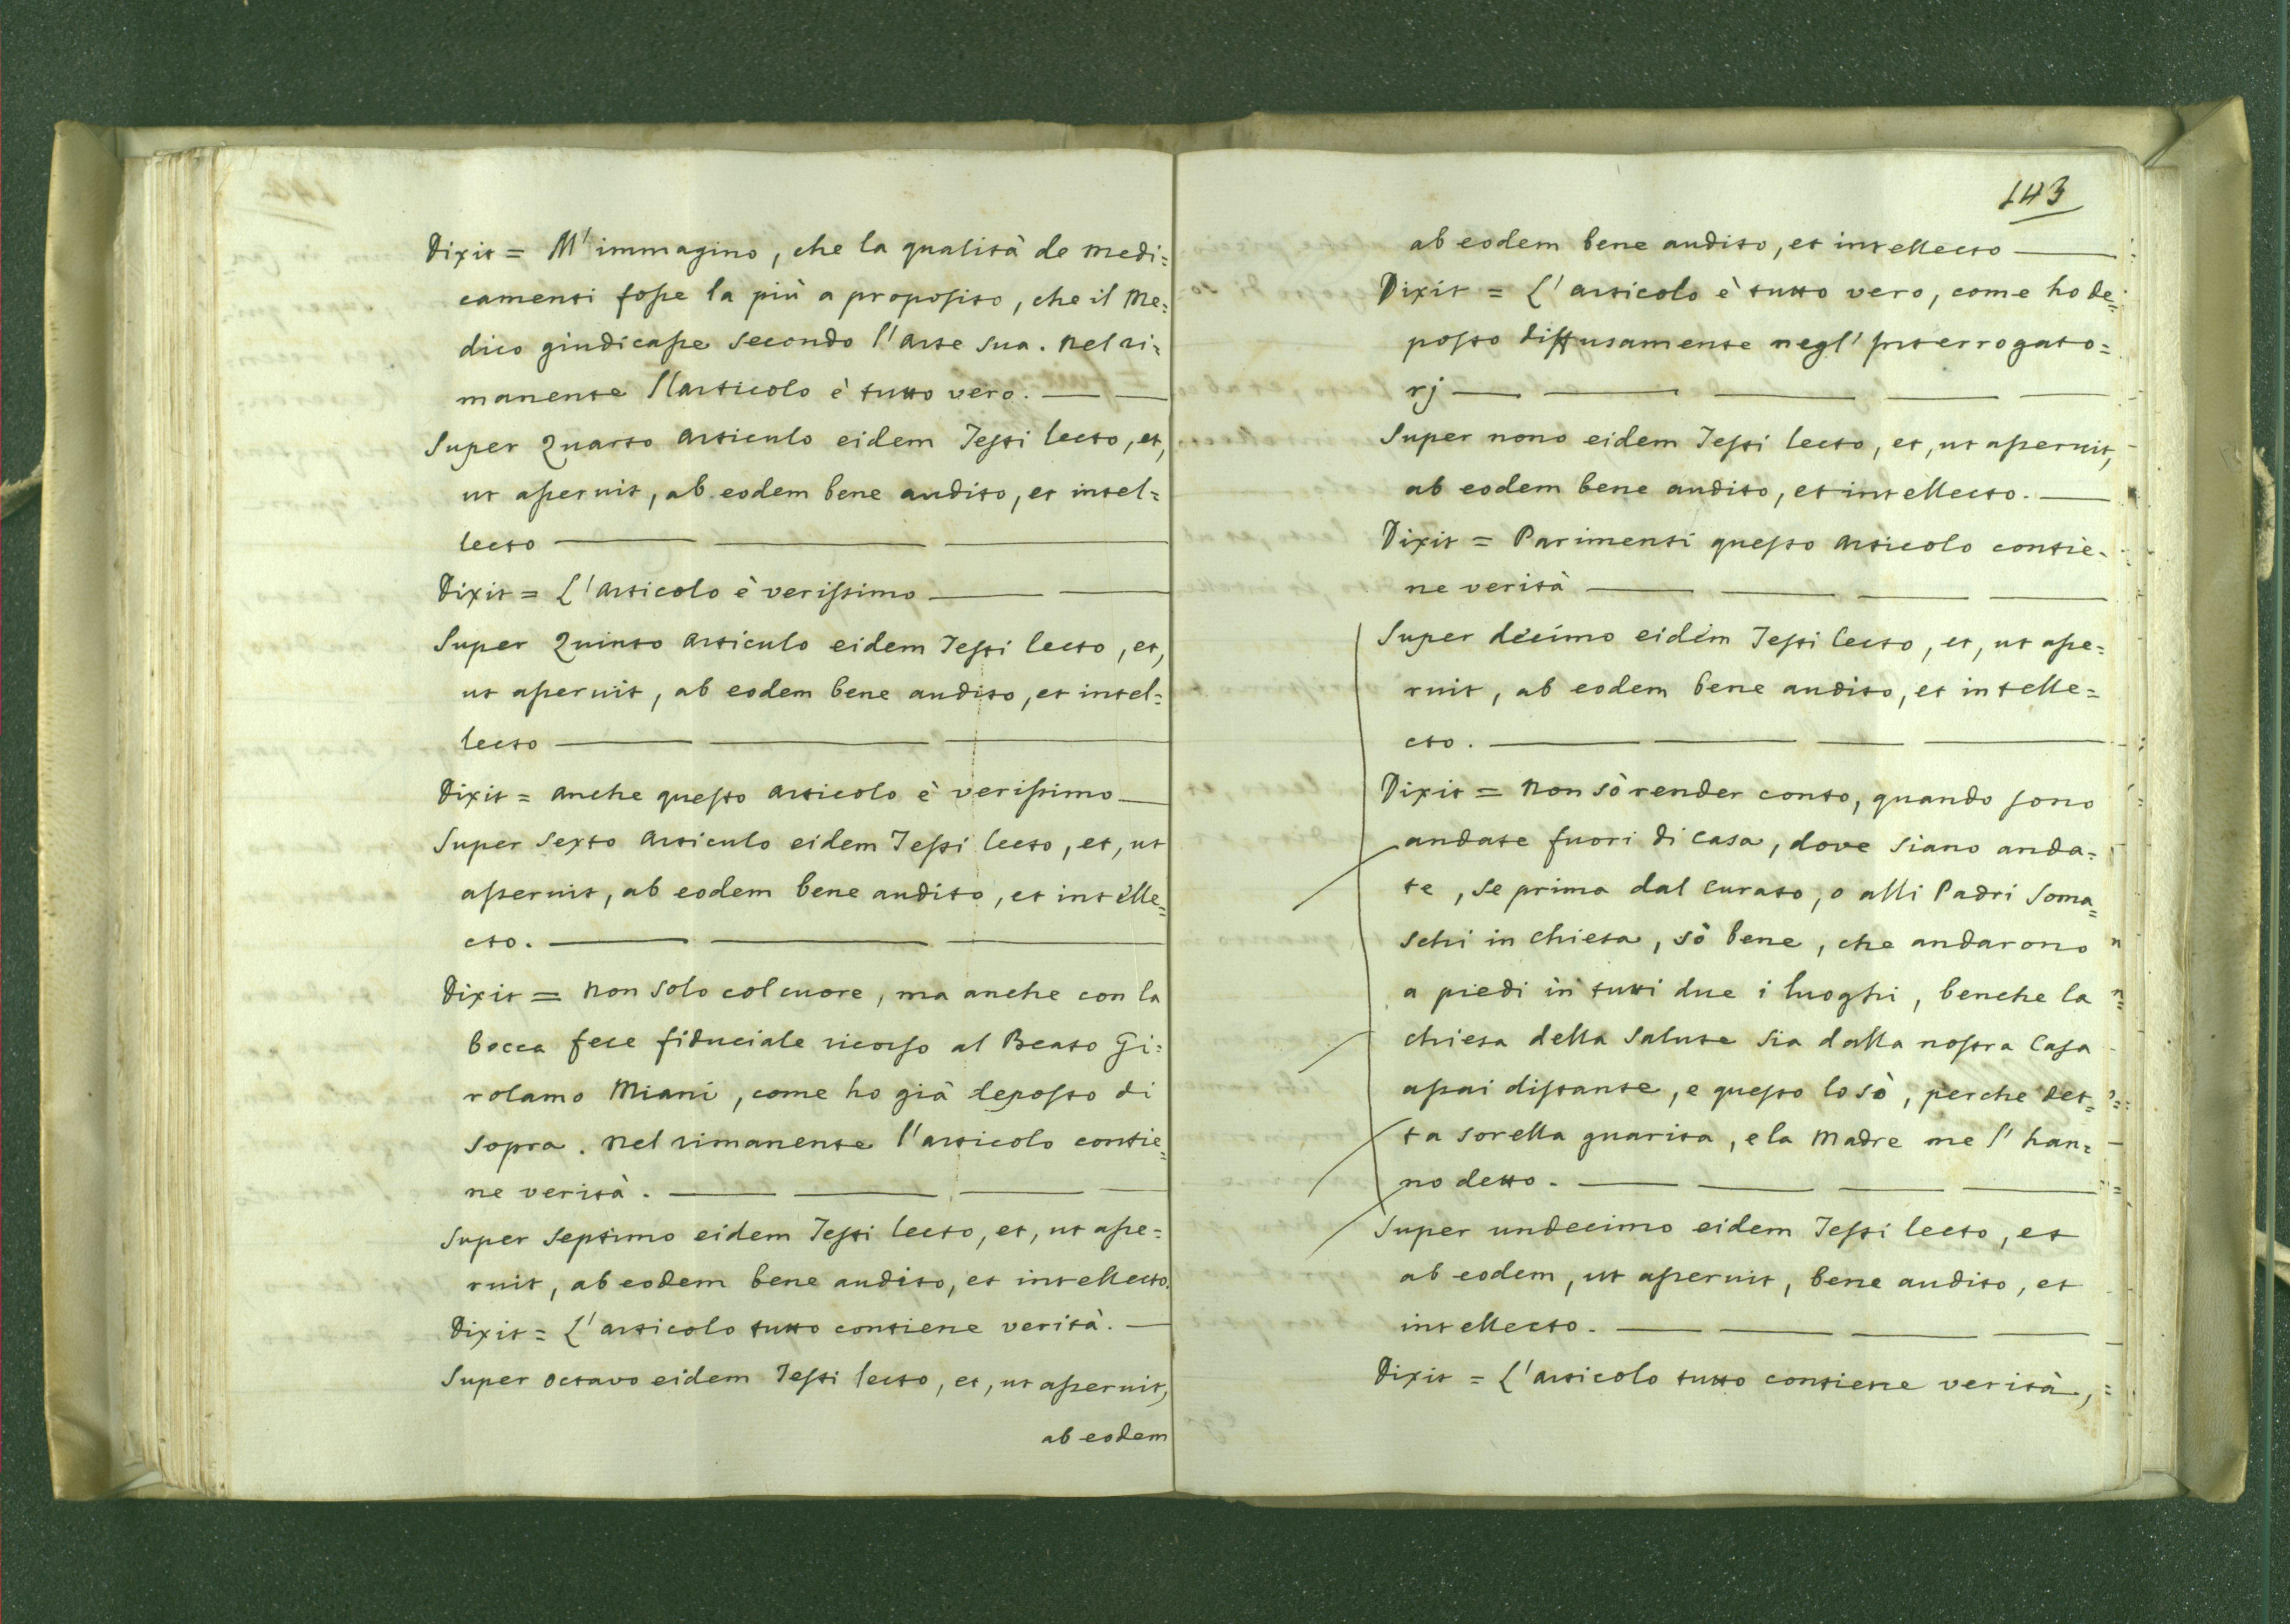 Dixit = M'immagino, che la qualità de medi=
camenti fosse la più a proposito, che il Me=
dico giudicasse secondo l'arte sua. Nel ri=
manente l'articolo è tutto vero.
Super Quarto articulo eidem Testi lecto, et,
ut asseruit, ab eodem bene audito, et intel=
lecto
Dixit = L'articolo è verissimo
Super Quinto articulo eidem Testi lecto, et,
ut asseruit, ab eodem bene audito, et intel=
lecto
Dixit = anche questo articolo è verissimo
Super Sexto articulo eidem Testi lecto, et, ut
asseruit, ab eodem bene audito, et intelle=
cto.
Dixit = Non solo col cuore, ma anche con la
bocca fece fiduciale ricorso al Beato Gi=
rolamo Miani, come ho già deposto di
sopra. Nel rimanente l'articolo contie=
ne verità.
Super Septimo eidem Testi lecto, et, ut asse=
ruit, ab eodem bene audito, et intellecto.
Dixit = L'articolo tutto contiene verità.
Super octavo eidem Testi lecto, et, ut asseruit,
ab eodem
143
ab eodem bene audito, et intellecto
Dixit = L'articolo è tutto vero, come ho de=
posto diffusamente negl'Interrogato=
rj
Super nono eidem Testi lecto, et, ut asseruit,
ab eodem bene audito, et intellecto.
Dixit = Parimenti questo articolo contie=
ne verità
Super decimo eidem Testi lecto, et, ut asse=
ruit, ab eodem bene audito, et intelle=
cto.
Dixit = Non sò render conto, quando sono
andate fuori di casa, dove siano anda=
te, se prima dal Curato, o alli Padri Soma=
schi in chiesa, sò bene, che andarono
a piedi in tutti due i luoghi, benche la
chiesa della Salute sia dalla nostra Casa
assai distante, e questo lo sò, perche det=
ta sorella guarita, e la Madre me l'han=
no detto.
Super undecimo eidem Testi lecto, et
ab eodem, ut asseruit, bene audito, et
intellecto.
Dixit = L'articolo tutto contiene verità,